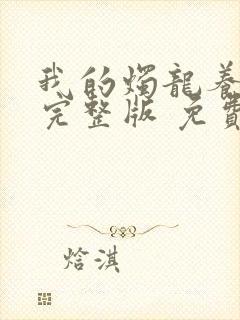 我的燭龍養
完整版 免費
焓淇